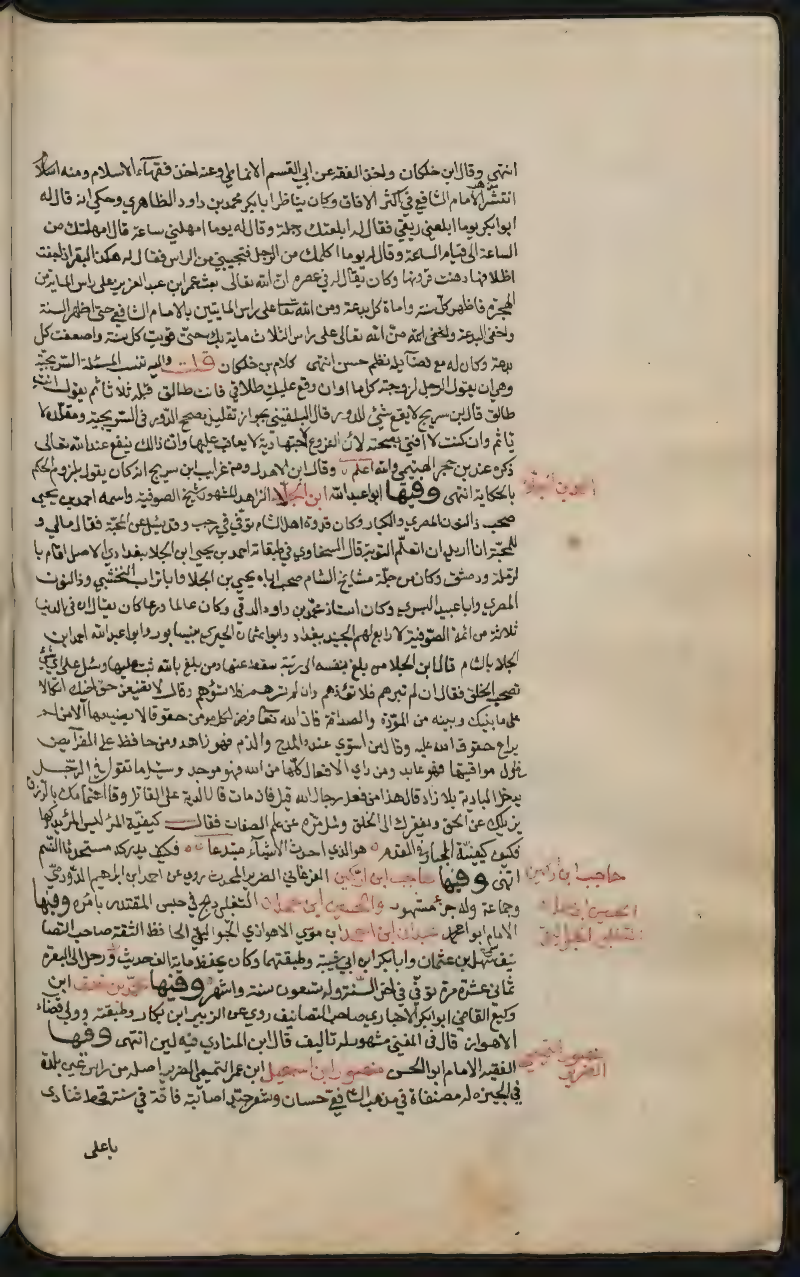 انتهى وقال ابن خلكان واخذ الفقه عن ابي القسم الانماطي وعنه اخذ فقهاء الاسلام ومنه
انتشر الامام الشافعي في اكثر الافاق وكان يناظر ابا بكر محمد بن داود الظاهري وحكي انه قال له
ابو بكر يوما ابلعني ريقي فقال له ابلعتك دجلة وقال له يوما امهلني ساعة قال امهلتك من
الساعة الى قيام الساعة وقال له يوما اكلمك من الرجل فتجيبني من الراس فقال له هكذا البقر اذا حفت
اظلافها دهنت قرونها وكان يقال له في عصره ان الله تعالى بعث عمر ابن عبد العزيز على راس الماية من
الهجرة فاظهر كل سنة وامات كل بدعة ومن الله تعالى على راس المايتين بالامام الشافعي حتى اظهر السنة
واخفى البدعة ومن الله تعالى على راس الثلاث ماية بك حتى قويت كل سنة واضعفت كل
بدعة وكان له مع فضايله نظم حسن انتهى كلام بن خلكان قلت واليه تنسب المسئلة السريجية
وهي ان يقول الرجل لزوجته كلما اوان وقع عليك طلاقي فانت طالق قبله ثلاثا ثم يقول انت
طالق قال ابن سريج لا يقع شي للدور قال البلقيني يجواز تقليد مصحح الدور في السريجية ومقلده لا
ياثم وان كنت لا افتي بصحته لان الفروع اجتهادية لا يعاقب عليها وان ذالك ينفع عند الله تعالى
ذكره عنه بن حجر الهيتمي والله اعلم وقال ابن الاهدل ومن غرايب ابن سريج انه كان يقول بلزوم الحكم
بالحكاية انتهى وفيها ابو عبد الله ابن الجلا الزاهد المشهور شيخ الصوفية واسمه احمد بن يحيى
صحب ذا النون المصري والكبار وكان قدوة اهل الشام توفي في رجب وقد سئل عن المحبة فقال مالي و
للمحبة انا اريد ان اتعلم التوبة قال السخاوي في طبقاته احمد بن يحيى ابن الجلا بغدادي الاصل اقام با
لرملة ودمشق وكان من جلة مشايخ الشام صحب اباه يحيى بن الجلا وابا تراب النخشبي وذا النون
المصري وابا عبيد البسري وكان استاذ محمد بن داود الدقي وكان عالما ورعا كان يقال ان في الدنيا
ثلاثة من ائمة الصوفية لا رابع لهم الجنيد ببغداد وابو عثمان الحيري بنيسابور وابو عبد الله احمد ابن
الجلا بالشام قال ابن الجلا من بلغ بنفسه الى رتبة سقط عنها ومن بلغ بالله ثبت عليها وسئل على اي شي
تصحب الخلق فقال ان لم تبرهم فلا تؤذهم وان لم تسرهم فلا تسؤهم وقال لا تضيعن حق اخيك اتكالا
على ما بينك وبينه من المودة والصداقة فان الله تعالى فرض لكل مومن حقوقا لا يضيعها الا من لم
يراع حقوق الله عليه وقال من استوى عنده المدح والذم فهو زاهد ومن حافظ على الفرايض
في اول مواقيتها فهو عابد ومن راى الافعال كلها من الله فهو موحد وسئل ما تقول في الرجل
يدخل البادية بلا زاد قال هذا من فعل رجال الله قيل فان مات قال الدية على القاتل وقال اهتمامك بالرزق
يزيلك عن الحق ويفقرك الى الخلق وسئل مرة عن علم الصفات فقال كيفية المرء ليس المرء يدركها
فكيف كيفية الجبار في القدم هو الذي احدث الاشياء مبتدعا فكيف يدركه مستحدث النسم
انتهى وفيها حاجب ابن اركين الفرغاني الضرير المحدث روى عن احمد ابن ابراهيم الدورقي
وجماعة وله جزء مشهور والحسين ابن حمدان التغلبي ذبح في حبس المقتدر بامره وفيها
الامام ابو احمد عبدان ابن احمد ابن موسى الاهوازي الجواليقي الحافظ الثقة صاحب التصا
نيف سمع سهل بن عثمان وابا بكر ابن ابي شيبة وطبقتهما وكان يحفظ ماية الف حديث ورحل الى البصرة
ثماني عشرة مرة توفي في اخر السنة وله تسعون سنة واشهر وفيها محمد بن خلف ابن
وكيع القاضي ابو بكر الاخباري صاحب التصانيف روى عن الزبير ابن بكار وطبقته وولي قضاء
الاهواز قال في المغني مشهور له تاليف قال ابن المنادي فيه لين انتهى وفيها
الفقيه الامام ابو الحسن منصور ابن اسمعيل ابن عمر التميمي الضرير اصله من راس عين بلدة
في الجيزة له مصنفاة في مذهب الشافعي حسان وشعر جيد اصابته فاقة في سنة قحط فنادى
باعلى
احمد بن الجلا
حاجب ابن اركين
الحسين ابن حمدان
التغلبي الجواليقي
منصور التميمي
الضرير